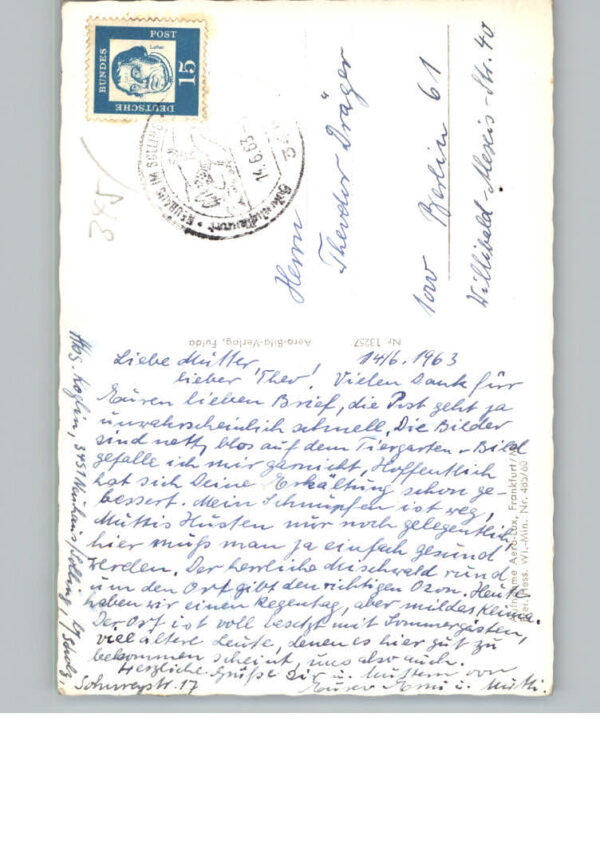 DEUTSCHE
BUNDES
POST
15
Luther
NEUHAUS IM SOLLING
14.6.63
345
Herrn
Theodor Dräger
1000 Berlin 61
Willibald-Alexis-Str. 40
Aero-Bild-Verlag, Fulda
Nr 13257
14/6. 1963
Liebe Mutter,
lieber Theo! Vielen Dank für
Euren lieben Brief, die Post geht ja
unwahrscheinlich schnell. Die Bilder
sind nett, blos auf dem Tiergarten-Bild
gefalle ich mir garnicht, Hoffentlich
hat sich Deine Erkältung schon ge-
bessert. Mein Schnupfen ist weg,
Muttis Husten nur noch gelegentlich,
hier muß man ja einfach gesund
werden. Der herrliche Mischwald rund
um den Ort gibt den richtigen Ozon. Heute
haben wir einen Regentag, aber mildes Klima.
Der Ort ist voll besetzt mit Sommergästen,
viel ältere Leute, denen es hier gut zu
bekommen scheint, uns also auch.
Herzliche Grüße Dir u. Muttern von
Eurer u. Mutti.
Abs. 3451 Neuhaus/Solling
Aero-Lux, Frankfurt/M.
Hess. Wi.-Min. Nr. 485/60